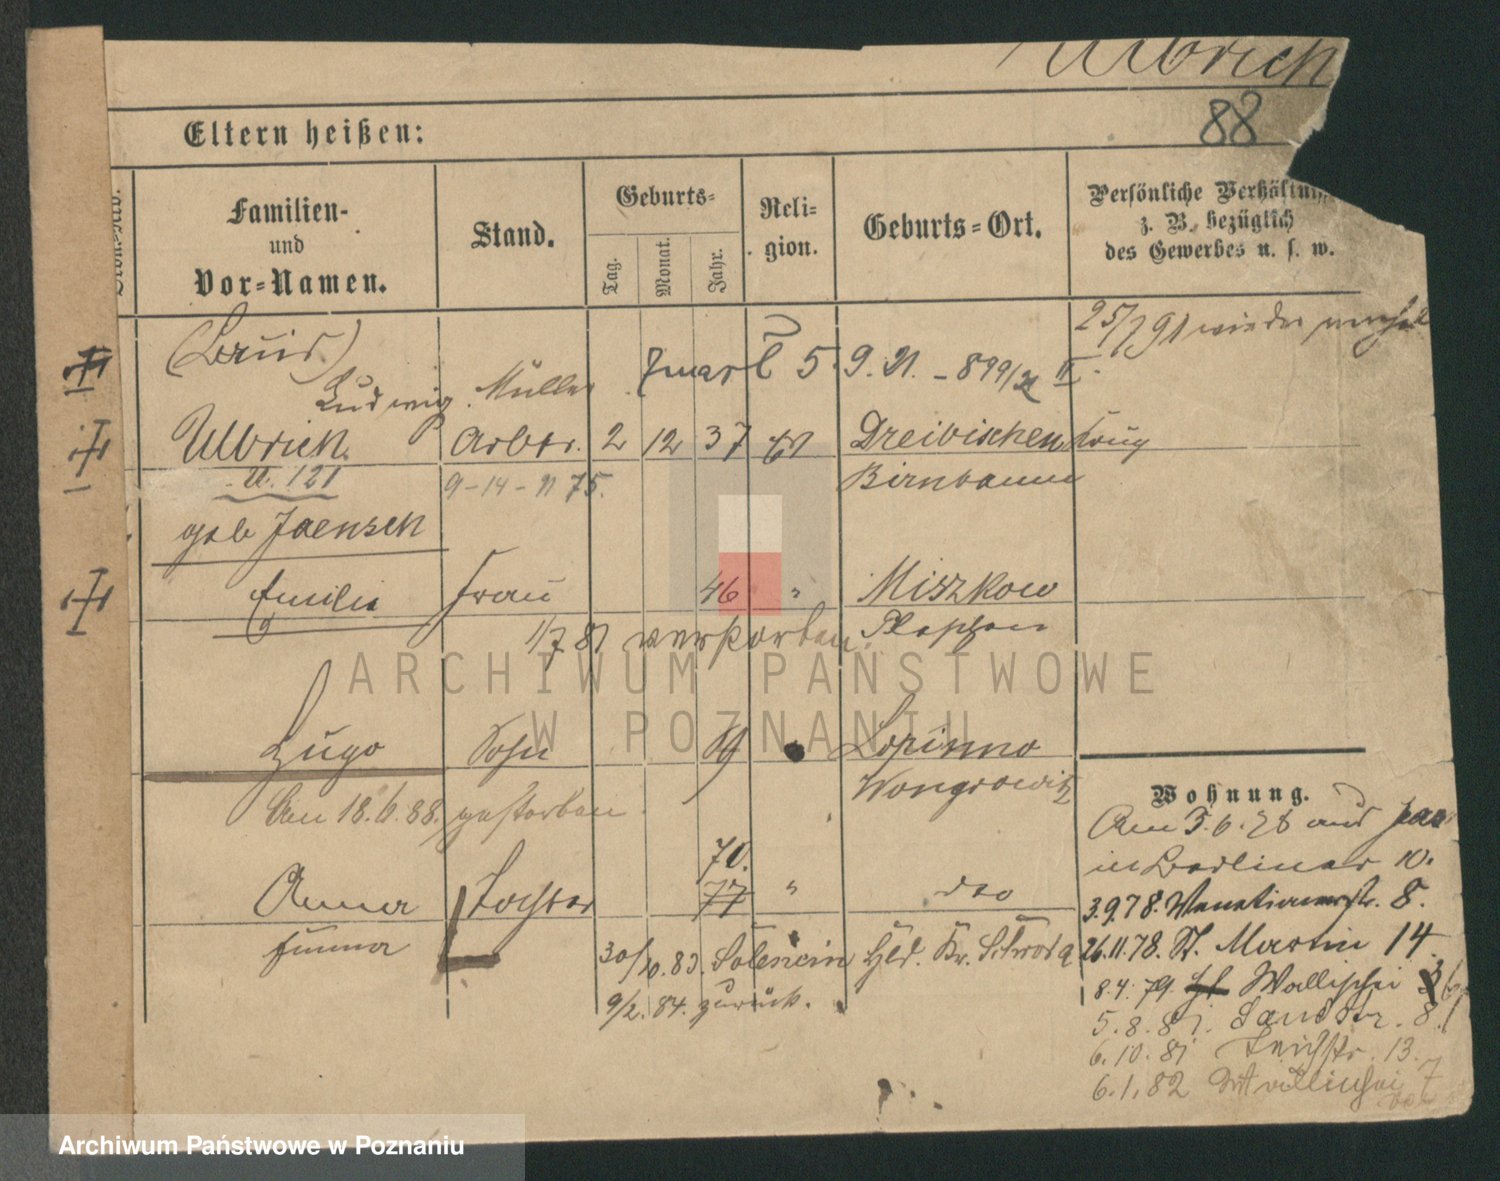 Ulbrich
88
Eltern heißen:
Familien-
und
Vor-Namen.
Stand.
Geburts-
Tag.
Monat.
Jahr.
Reli-
gion.
Geburts-Ort.
Persönliche
z. B. bezüglich
des Gewerbes u. s. w.
25/7 91 wieder
(Louis)
5.9.91. - 899/91 II.
Ludwig. Müller
Ulbrich. Arbtr. 2 12 37 Dreibischenkrug
U. 121 9-14-11 75. Birnbaum
geb Jaensch
Emilie Frau 46 " Miszkow
1/7 81 verstorben. Pleschen
Hugo Sohn 69 Lopinno
Wongrowitz
Am 18.6.88. gestorben.
70.
Anna Tochter 77 " dto
Emma 30/10.83. Kr. Schroda
9/2.84. zurück.
Wohnung.
Am 3.6.78 aus
in Berliner 10.
3.9.78. Venetianerstr. 8.
26.11.78. St. Martin 14
8.4.79. Wallischei
5.8.81. Sandstr. 8.
6.10.81 Teichstr. 13.
6.1.82 Wallischei 7
ARCHIWUM PAŃSTWOWE
W POZNANIU
Archiwum Państwowe w Poznaniu